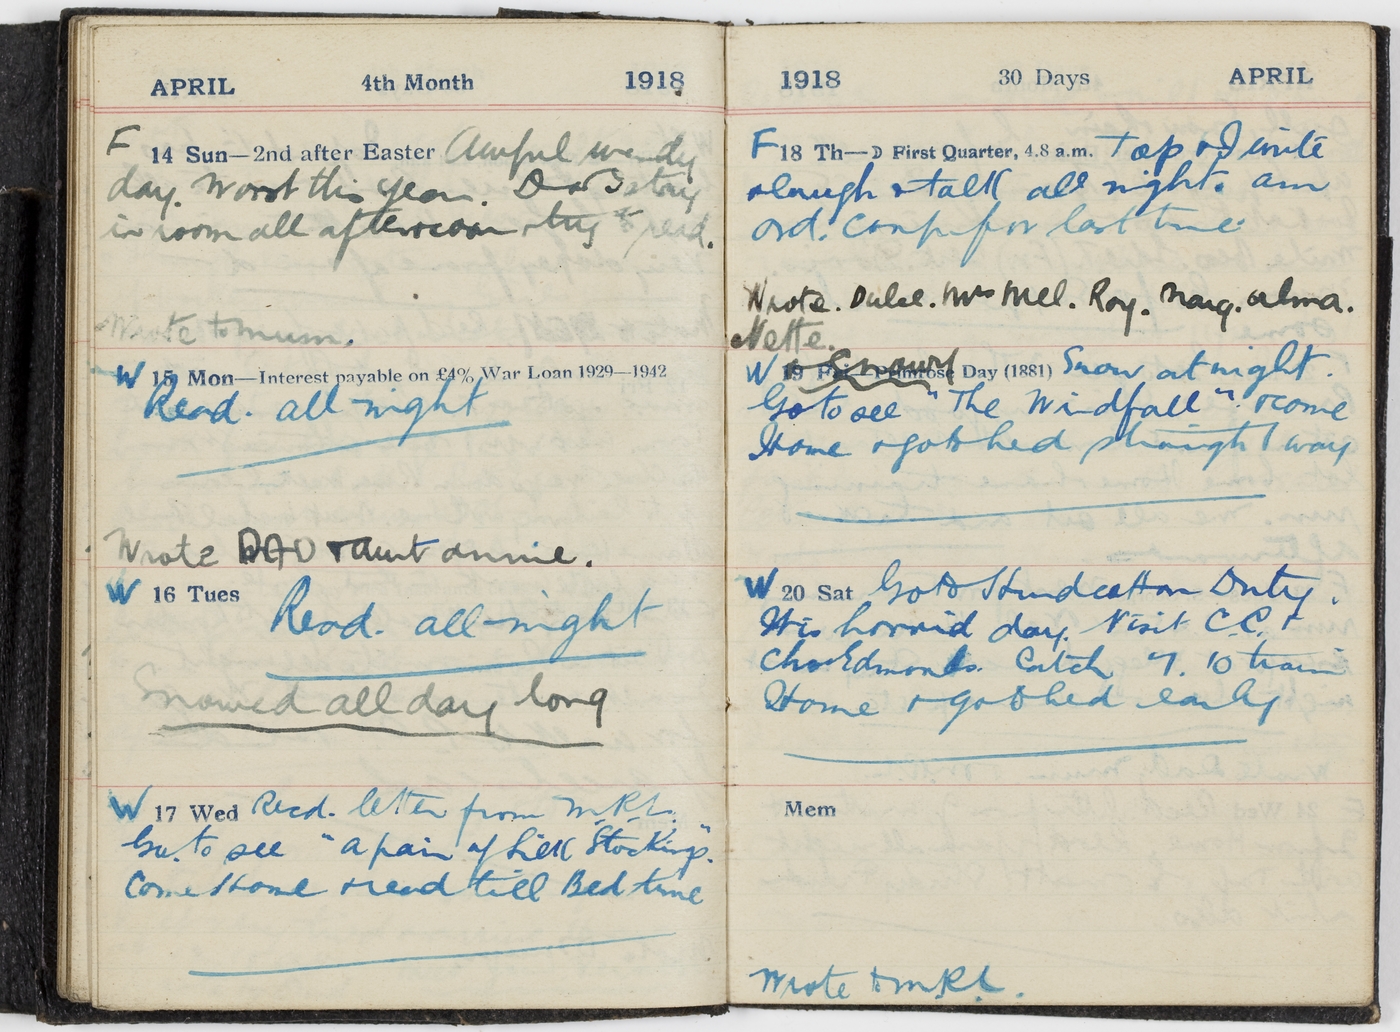 APRIL 4th Month 1918
F 14 Sun—2nd after Easter Awful windy
day. Worst this year. D & I stay
in room all afternoon & try to read.
Wrote to mum.
W 15 Mon—Interest payable on £4% War Loan 1929—1942
Read. all-night
Wrote DAD & Aunt Annie.
W 16 Tues Read. all-night
Snowed all day long
W 17 Wed Recd. letter from M.R.L.
Go. to see "A pair of Silk Stockings".
Come Home & read till Bed-time
1918 30 Days APRIL
F 18 Th—☽ First Quarter, 4.8 a.m. Tap & I write
& laugh & talk all night. am
ord. Corp for last time.
Wrote. Dulce. Mrs Mel. Roy. Marg. Alma.
Nette.
W 19 Primrose Day (1881) Snow at night.
Go to see "The Windfall". & come
Home & go to bed straight away
W 20 Sat Go to Hurdcott on Duty.
It is horrid day. Visit C.C. &
Chas Edmonds. Catch 7.10 train
Home & go to bed early
Mem
Wrote to M.R.L.